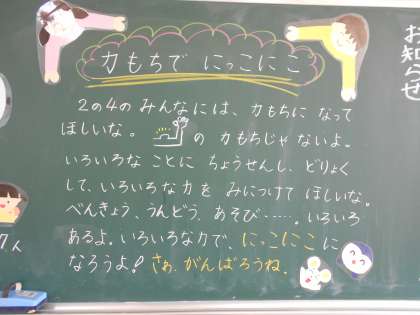 力もちで にっこにこ
2の4の みんなには、力もちに なって
ほしいな。 の 力もちじゃ ないよ。
いろいろな ことに ちょうせんし、どりょく
して、いろいろな力を みにつけて ほしいな。
べんきょう、うんどう、あそび……。いろいろ
あるよ。いろいろな力で、にっこにこに
なろうよ! さぁ、がんばろうね。
お知らせ
7人